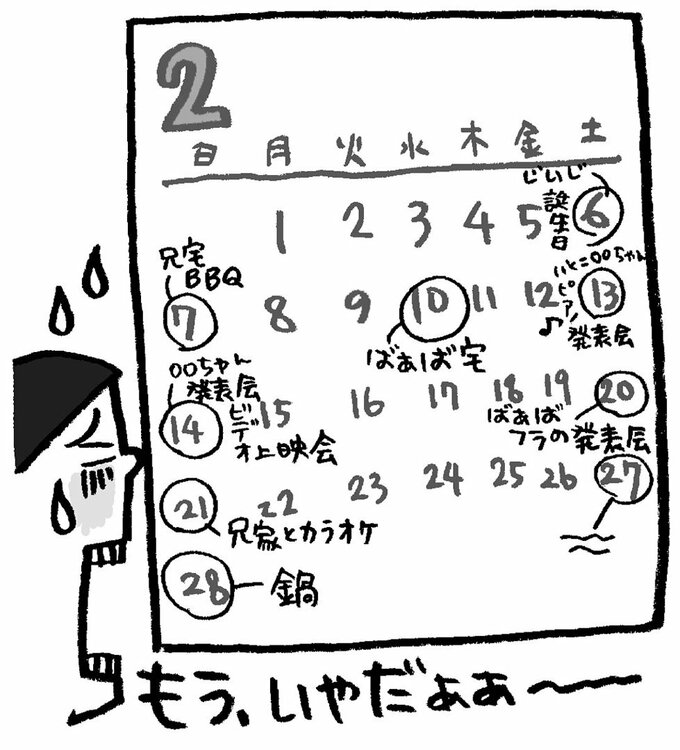 2
日 月 火 水 木 金 土
じいじ
誕生日
1 2 3 4 5 6
兄宅
BBQ
いとこ〇〇ちゃん
ピアノ
♪発表会
7 8 9 10 11 12 13
ばあば宅
〇〇ちゃん
発表会
ビデオ上映会
14 15 16 17 18 19 20
ばあば
フラの発表会
21 22 23 24 25 26 27
兄家とカラオケ
28
鍋
もう、いやだぁぁ〜